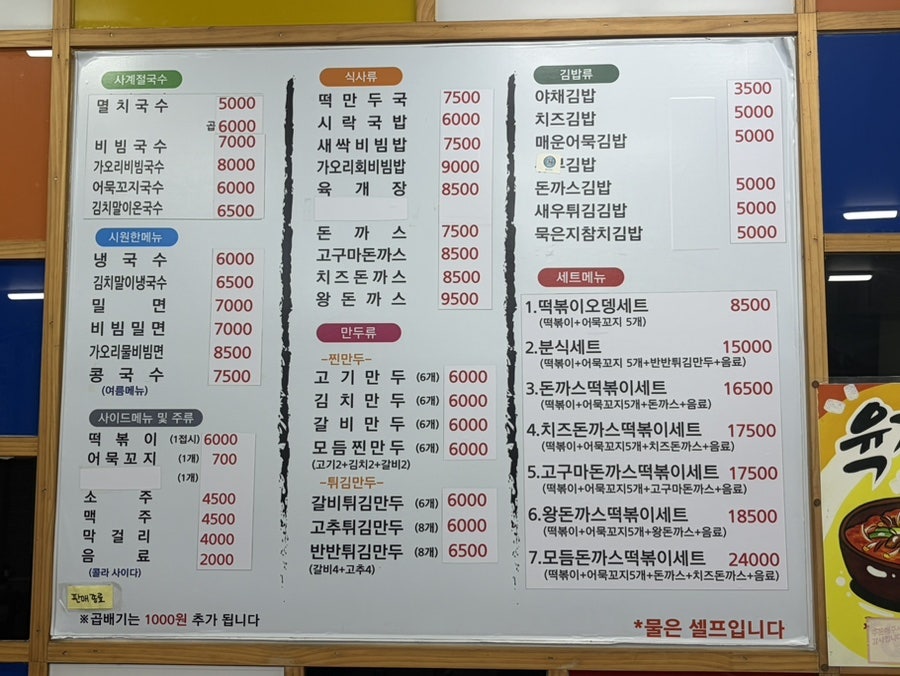 사계절국수
멸치국수 5000
곱 6000
비빔국수 7000
가오리비빔국수 8000
어묵꼬지국수 6000
김치말이온국수 6500
시원한메뉴
냉국수 6000
김치말이냉국수 6500
밀면 7000
비빔밀면 7000
가오리물비빔면 8500
콩국수 7500
(여름메뉴)
사이드메뉴 및 주류
떡볶이 (1접시) 6000
어묵꼬지 (1개) 700
(1개)
소주 4500
맥주 4500
막걸리 4000
음료 2000
(콜라 사이다)
판매종료
※곱배기는 1000원 추가 됩니다
식사류
떡만두국 7500
시락국밥 6000
새싹비빔밥 7500
가오리회비빔밥 9000
육개장 8500
돈까스 7500
고구마돈까스 8500
치즈돈까스 8500
왕돈까스 9500
만두류
-찐만두-
고기만두 (6개) 6000
김치만두 (6개) 6000
갈비만두 (6개) 6000
모듬찐만두 (6개) 6000
(고기2+김치2+갈비2)
-튀김만두-
갈비튀김만두 (6개) 6000
고추튀김만두 (8개) 6000
반반튀김만두 (8개) 6500
(갈비4+고추4)
김밥류
야채김밥 3500
치즈김밥 5000
매운어묵김밥 5000
김밥
돈까스김밥 5000
새우튀김김밥 5000
묵은지참치김밥 5000
세트메뉴
1.떡볶이오뎅세트 8500
(떡볶이+어묵꼬지 5개)
2.분식세트 15000
(떡볶이+어묵꼬지 5개+반반튀김만두+음료)
3.돈까스떡볶이세트 16500
(떡볶이+어묵꼬지5개+돈까스+음료)
4.치즈돈까스떡볶이세트 17500
(떡볶이+어묵꼬지5개+치즈돈까스+음료)
5.고구마돈까스떡볶이세트 17500
(떡볶이+어묵꼬지5개+고구마돈까스+음료)
6.왕돈까스떡볶이세트 18500
(떡볶이+어묵꼬지5개+왕돈까스+음료)
7.모듬돈까스떡볶이세트 24000
(떡볶이+어묵꼬지5개+돈까스+치즈돈까스+음료)
*물은 셀프입니다
육